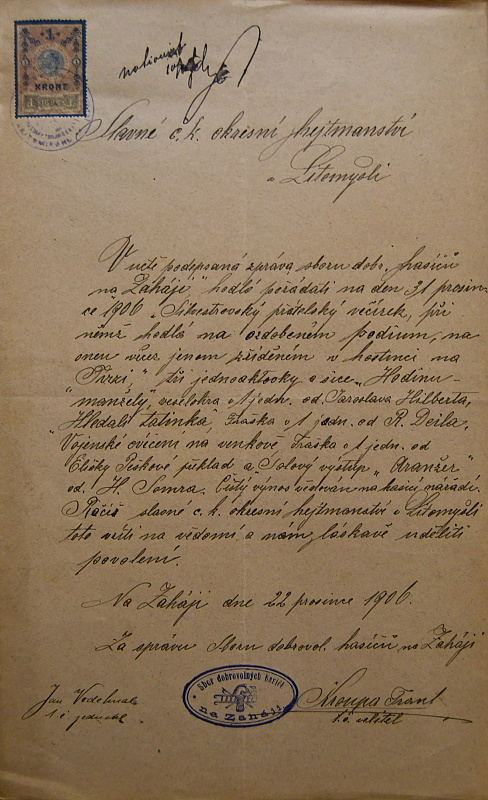 1
KRONE
Slavné c. k. okresní hejtmanství
v Litomyšli
V úctě podepsaná zpráva sboru dobr. hasičů
na Zaháji, hodlá pořádati na den 31 prosin-
ce 1906 „Silvestrovský přátelský večírek, při
němž hodlá na ozdobeném podium, na
onen večer jenom zřízeném v hostinci na
tři jednoaktovky a sice „Hodinu
manžely" veselohra o 1 jedn. od Jaroslava Hilberta,
Hledali tatínka, fraška o 1 jedn. od R. Deila,
„Vojenské cvičení na venkově fraška o 1 jedn. od
Elišky Peškové překlad a Solový výstup „Aranžer"
od H. Somra. Čistý výnos věnován na hasicí nářadí.
Račiž slavné c. k. okresní hejtmanství v Litomyšli
toto vzíti na vědomí a nám laskavě uděliti
povolení.
Na Zaháji dne 22 prosince 1906.
Za správu Sboru dobrovol. hasičů na Zaháji
Sbor dobrovolných hasičů
na Zaháji
Jan
t. č. jednatel
Kroupa Frant
t. č. velitel